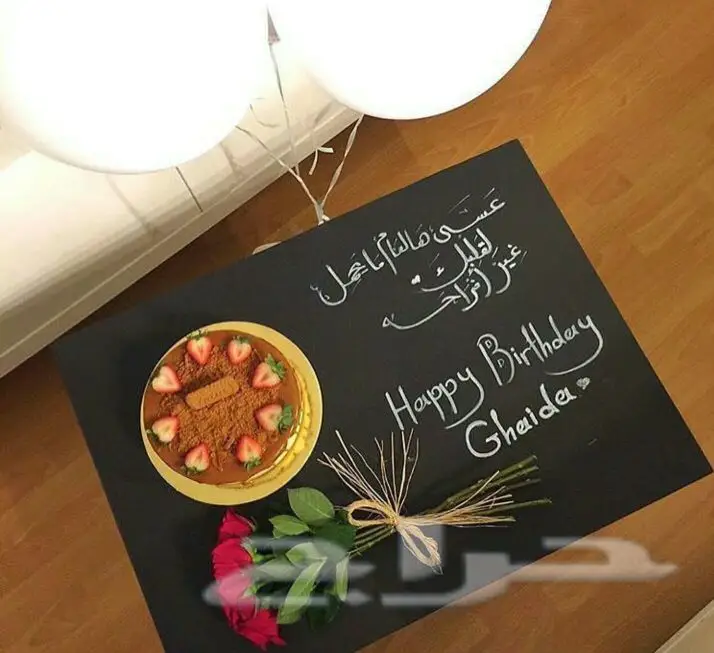 عسى هالعام ما يحمل
لقلبك
غير أفراحه
Happy Birthday
Ghaida
حراج